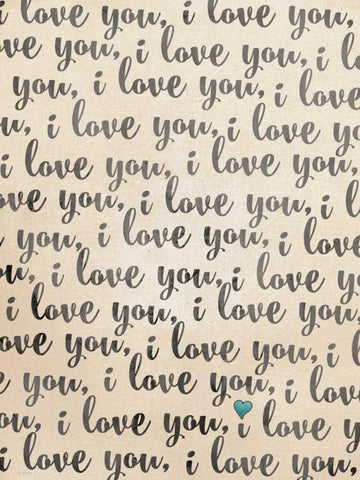 i love you, i love you,
love you, i love you,
you, i love you, i love
u, i love you, i love
i love you, i love you,
love you, i love you,
you, i love you, i love
you, i love you, i love
i love you, i love you,
love you, i love you,
e you, i love you, i
you, i love you, i love
i love you, i love you,